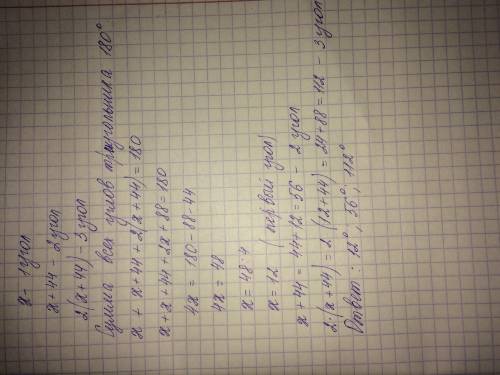 x - 1 угол
x+44 - 2 угол
2(x+44) - 3 угол
Сумма всех углов треугольника 180°
x + x+44 + 2(x+44) = 180
x+x+44+2x+88=180
4x = 180-88-44
4x = 48
x = 48:4
x = 12 (первый угол)
x+44 = 44+12 = 56 - 2 угол
2·(x+44) = 2(12+44) = 24+88 = 112 - 3 угол
Ответ: 12°, 56°, 112°